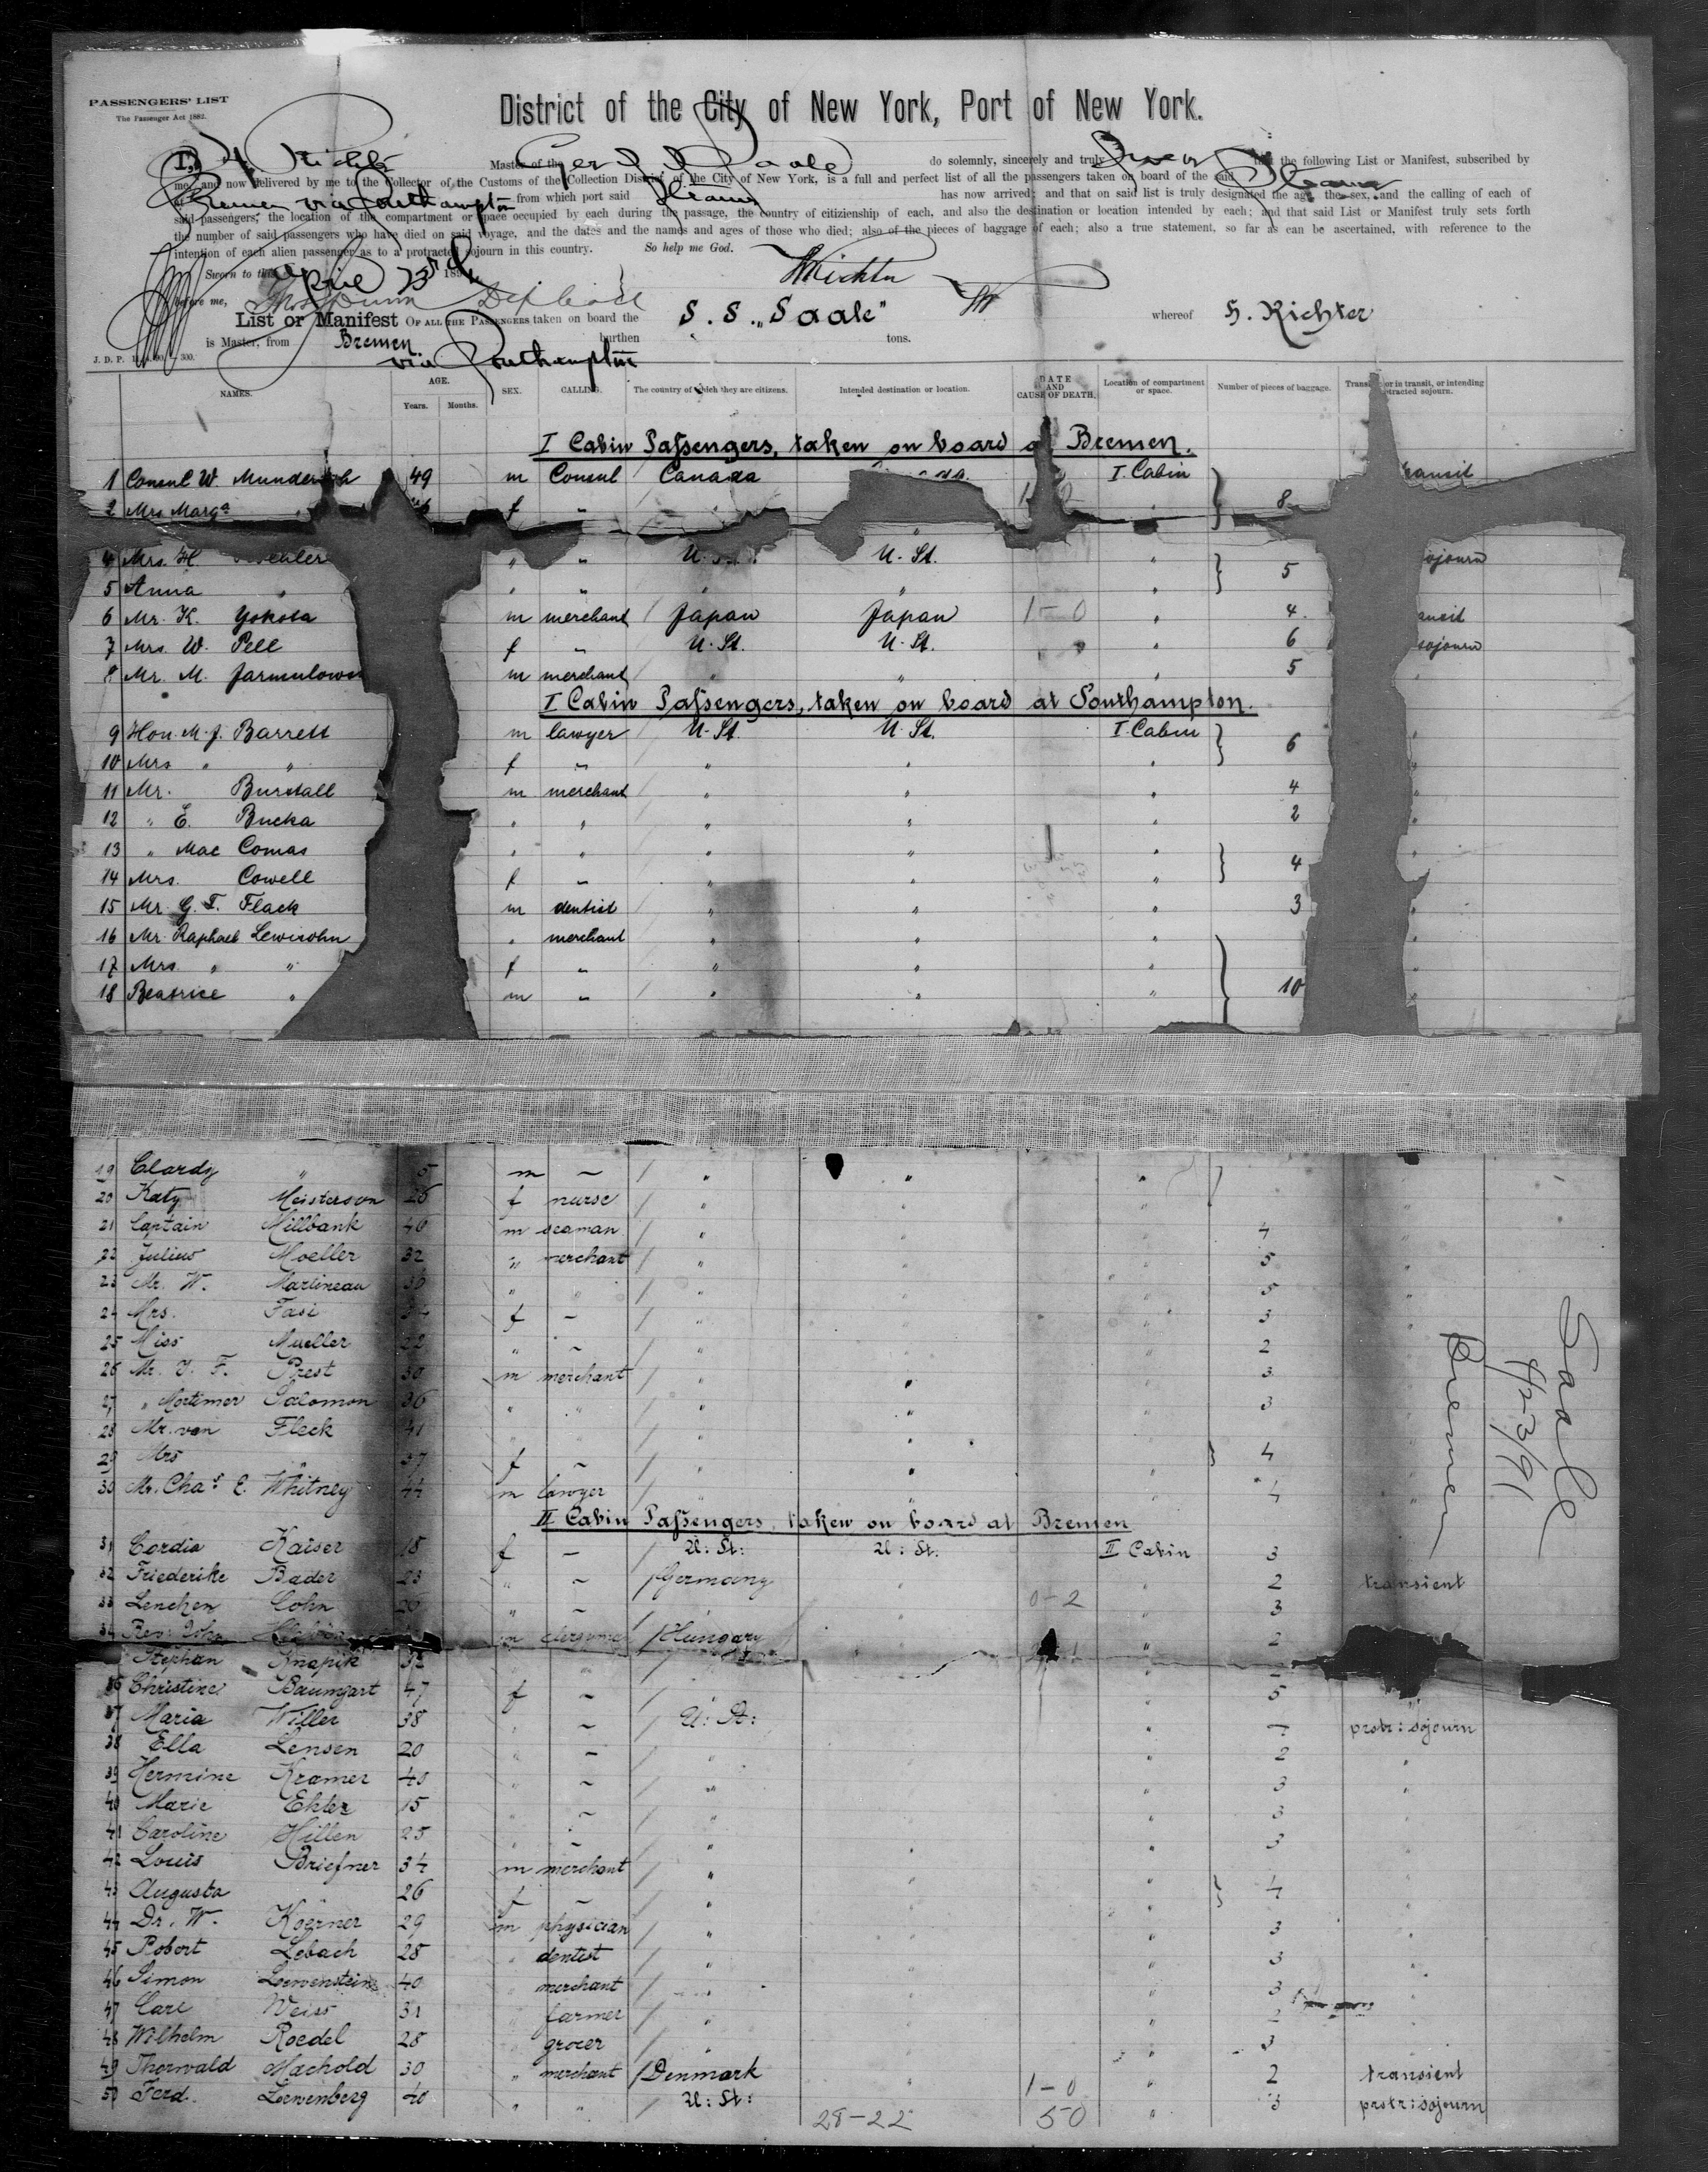 PASSENGERS' LIST
The Passenger Act 1882.
District of the City of New York, Port of New York.
I, H. Richter Master of the Ger S S Saale do solemnly, sincerely and truly Swear that the following List or Manifest, subscribed by
me, and now delivered by me to the Collector of the Customs of the Collection District of the City of New York, is a full and perfect list of all the passengers taken on board of the said Steamer
Bremen via Southampton from which port said Steamer has now arrived; and that on said list is truly designated the age, the sex, and the calling of each of
said passengers, the location of the compartment or space occupied by each during the passage, the country of citizienship of each, and also the destination or location intended by each; and that said List or Manifest truly sets forth
the number of said passengers who have died on said voyage, and the dates and the names and ages of those who died; also of the pieces of baggage of each; also a true statement, so far as can be ascertained, with reference to the
intention of each alien passenger as to a protracted sojourn in this country. So help me God.
Sworn to this April 189
before me, HRichter
List or Manifest OF ALL THE PASSENGERS taken on board the S. S. „Saale" whereof H. Richter
is Master, from Bremen burthen tons.
via Southampton
J. D. P. 300.
NAMES. AGE. Years. Months. SEX. CALLING. The country of which they are citizens. Intended destination or location. DATE AND CAUSE OF DEATH. Location of compartment or space. Number of pieces of baggage. or in transit, or intending protracted sojourn.
I Cabin Passengers, taken on board at Bremen.
1 Consul W. 49 m Consul Canada I. Cabin
2 Mrs Marga " f " 8
4 Mrs. H. " " U. St. U. St. " 5 sojourn
5 Anna " " " " " "
6 Mr. K. Yokota m merchant Japan Japan 1-0 " 4
7 Mrs. W. Pell f " U. St. U. St. " 6 sojourn
8 Mr. M. m merchant " " " 5 "
I Cabin Passengers, taken on board at Southampton.
9 Hon. M. J. Barrett m lawyer U. St. U. St. I. Cabin 6 "
10 Mrs " " f " " " "
11 Mr. Burstall m merchant " " " 4 "
12 " E. Bucka " " " " " 2 "
13 " Mac Comas " " " " " 4 "
14 Mrs. Cowell f " " " "
15 Mr. G. T. Flack m dentist " " " 3 "
16 Mr. Raphael Lewisohn " merchant " " "
17 Mrs. " " f " " " "
18 Beatrice " m " " " " 10 "
19 Clardy " 5 m — " " "
20 Katy Meisterson 26 f nurse " " "
21 Captain Millbank 40 m seaman " " " 4
22 Julius Moeller 32 " merchant " " " 5 "
23 Mr. W. Martineau 36 " " " " " 5 "
24 Mrs. Fasi f — " " " 3 "
25 Miss Mueller 22 " — " " " 2 "
26 Mr. J. F. Prest 30 m merchant " " " 3 "
27 " Mortimer Salomon 36 " " " " " 3
28 Mr. van Fleck 41 " " " " "
29 Mrs " 37 f — " " " 4
30 Mr. Chas. E. Whitney 44 m lawyer " " " 4 "
II Cabin Passengers, taken on board at Bremen
31 Cordia Kaiser 18 f — U: St: U: St: II Cabin 3
32 Friederike Bader 23 " — Germany " " 2 transient
33 Lenchen Cohn 26 " — " " 0-2 " 3
34 Rev: John m Hungary " " 2
Stephan Knapik 32 " " " "
36 Christine Baumgart 47 f — " " 5 "
37 Maria Willer 38 " — U: St: " — protr: sojourn
38 Ella Lensen 20 " — " " 2 "
39 Hermine Kramer 40 " — " " 3 "
40 Marie Ehler 15 " — " " 3
41 Caroline Hillen 25 " — " " 3
42 Louis Briefner 34 m merchant " "
43 Augusta " 26 f — " " 4
44 Dr. W. Koerner 29 m physician " " 3
45 Robert Lebach 28 " dentist " " 3
46 Simon Loewenstein 40 " merchant " " 3
47 Carl Weiss 31 " farmer " " 2
48 Wilhelm Roedel 28 " grocer " " 3
49 Thorwald Machold 30 " merchant Denmark " 1-0 " 2 transient
50 Ferd. Loewenberg 40 " " U: St: " 3 protr: sojourn
28-22 50
Saale
4/23/91
Bremen